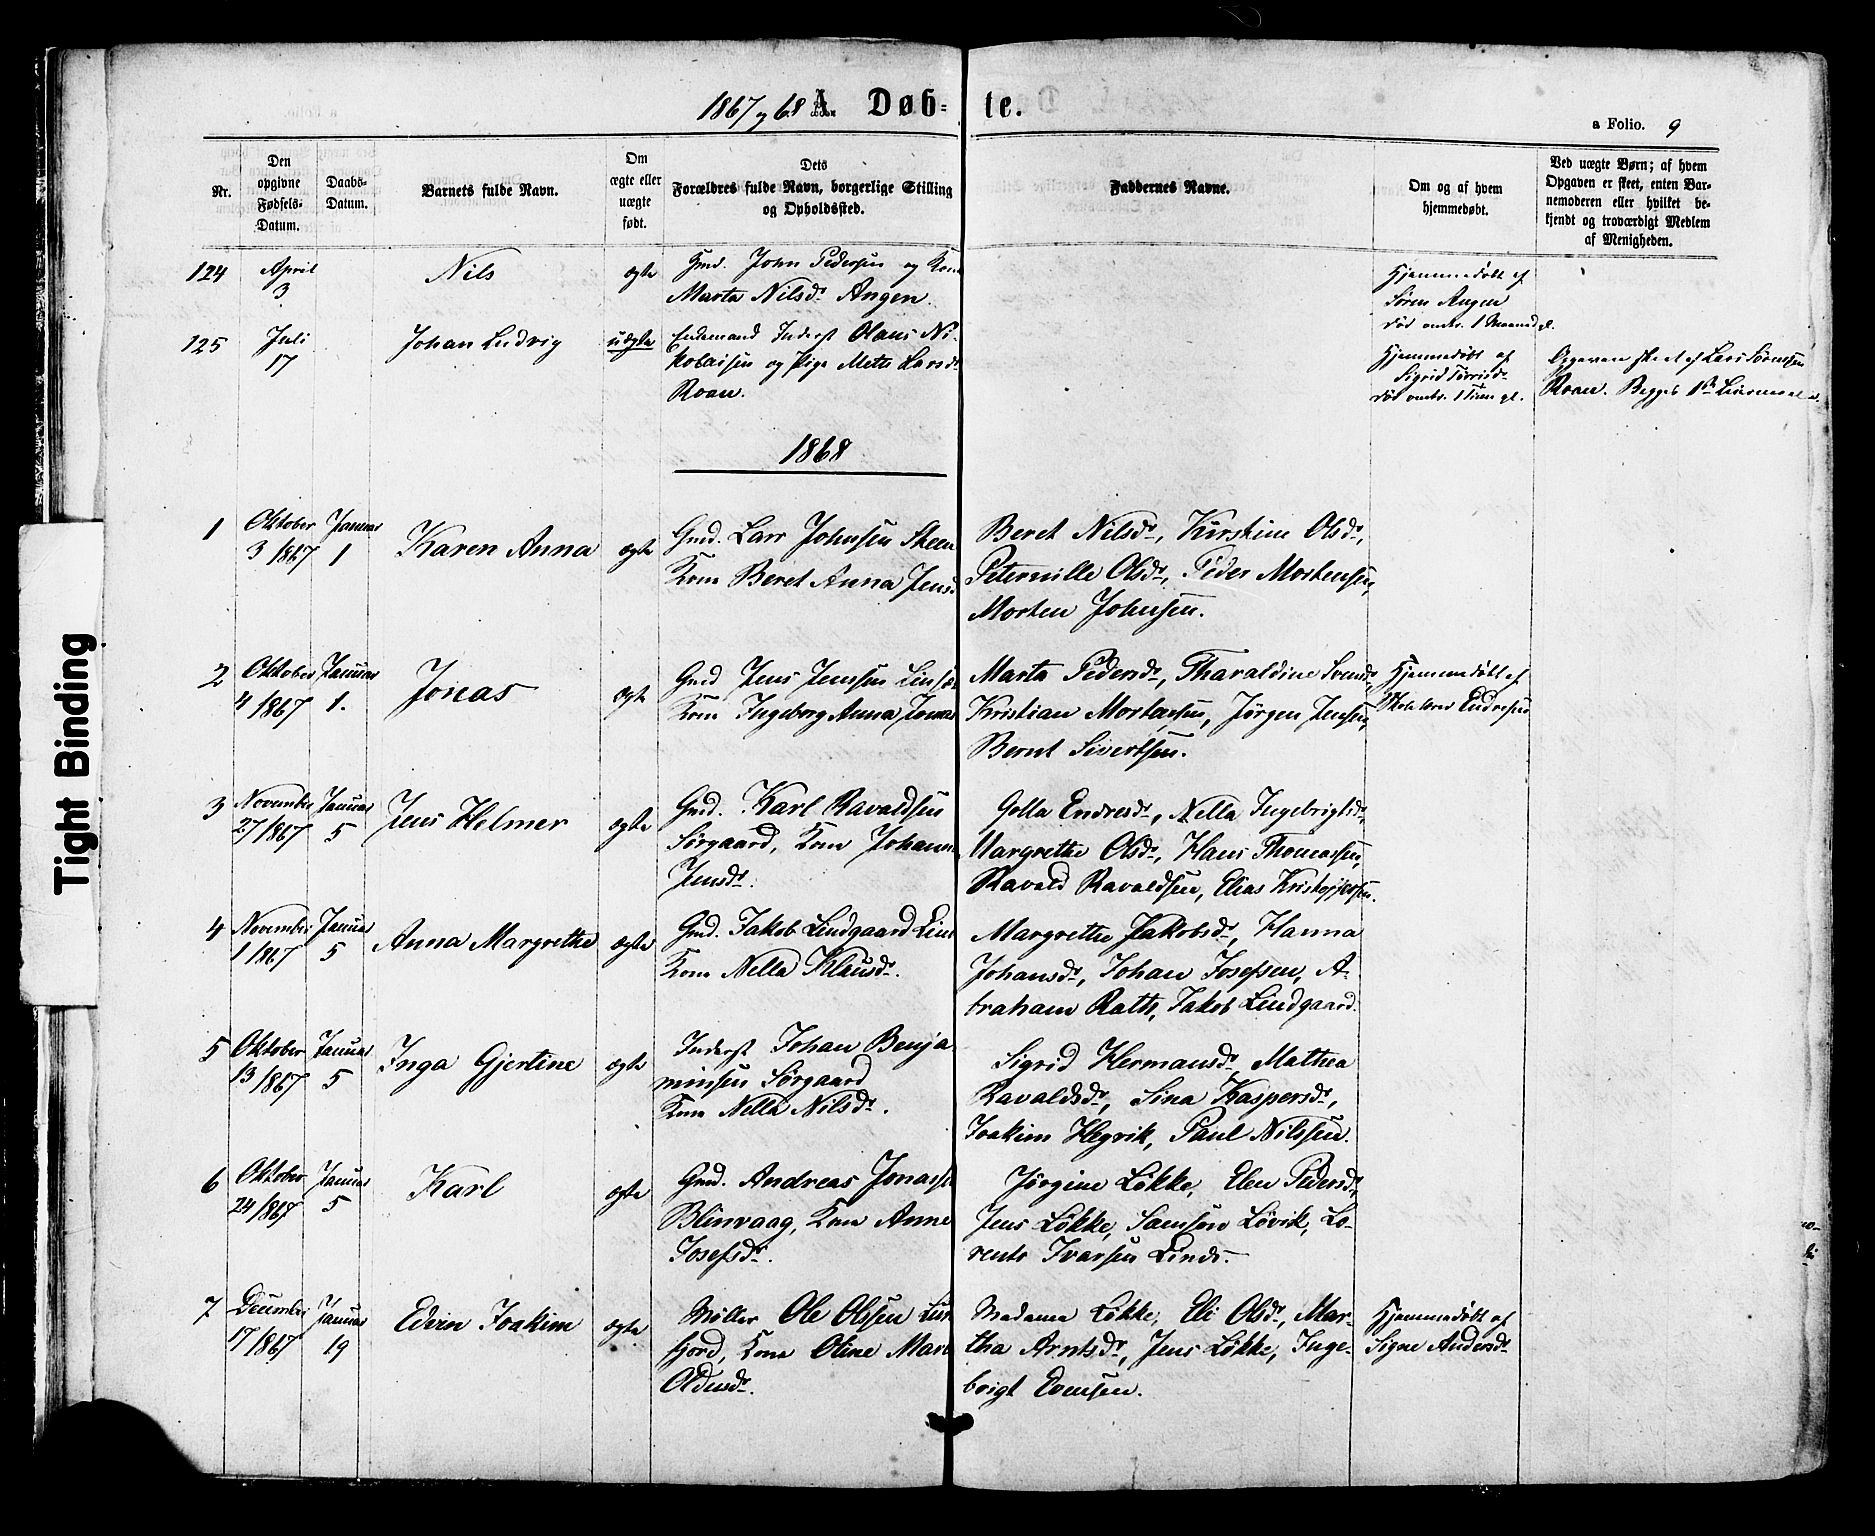 1867 og 68 A. Døb- te.
a Folio. 9
Nr.
Den opgivne Fødsels-Datum.
Daabs-Datum.
Barnets fulde Navn.
Om ægte eller uægte født.
Dets Forældres fulde Navn, borgerlige Stilling og Opholdssted.
Faddernes Navne.
Om og af hvem hjemmedøbt.
Ved uægte Børn; af hvem Opgaven er skeet, enten Barnemoderen eller hvilket bekjendt og troværdigt Medlem af Menigheden.
124 April 3 Nils ægte Gmd. John Pedersen og Kone
Marta Nilsdr. Angen.
Hjemmedøbt af
Søren Angen
død omtr. 1 Maaned gl.
125 Juli 17 Johan Ludvig uægte Enkemand Inderst Olaus Ni-
kolaisen og Pige Mette Larsdr.
Roan.
Hjemmedøbt af
Sigrid
død omtr. 1 Time gl.
Opgaven skeet af Lars Sørensen
Roan. Begges 1ste Leiermaal
1868
1 Oktober 3 1867 Januar 1 Karen Anna ægte Gmd. Lars Johnsen Skeen
Kone Beret Anna Jensd
Beret Nilsdr., Kirstine Olsdr.,
Peternille Olsdr., Peder Mortensen,
Morten Johnsen.
2 Oktober 4 1867 Januar 1. Jonas ægte Gmd Jens Jenssen
Kone Ingeborg Anna Jonas
Marta Pedersdr., Tharaldine Svensdr.,
Kristian Mortensen, Jørgen Jensen,
Bernt Sivertsen.
Hjemmedøbt af
Skolelærer Endresen
3 November 27 1867 Januar 5 Jens Helmer ægte Gmd. Karl Ravaldsen
Sørgaard, Kone Johanna
Jensdr.
Golla Endresdr., Nella Ingebrigtsdr.,
Margrethe Olsdr., Hans Thomassen,
Ravald Ravaldsen, Elias Kristoffersen.
4 November 1 1867 Januar 5 Anna Margrethe ægte Gmd. Jakob Lindgaard
Kone Nella Klausdr.
Margrethe Jakobsdr., Hanna
Johansdr., Johan Josefsen, A-
braham Rath, Jakob Lindgaard.
5 Oktober 13 1867 Januar 5 Inga Gjertine ægte Inderst Johan Benja
minsen Sørgaard
Kone Nella Nilsdr.
Sigrid Hermansdr., Mathea
Ravaldsdr., Sina Kaspersdr.,
Joakim Hegvik, Paul Nilssen.
6 Oktober 24 1867 Januar 5 Karl ægte Gmd. Andreas Jonass
Blinvaag, Kone Anne
Josefsdr.
Jørgine Løkke, Elen Pedersdr.,
Jens Løkke, Samson Løvik, Lo-
rents Ivarsen Linds.
7 December 17 1867 Januar 19 Edvin Joakim ægte Møller Ole Olssen
fjord, Kone Oline Mart
Oldensdr.
Madame Løkke, Eli Olsdr., Mar-
tha Arntsdr., Jens Løkke, Inge-
brigt Evensen.
Hjemmedøbt af
Signe Andersdr.
Tight Binding